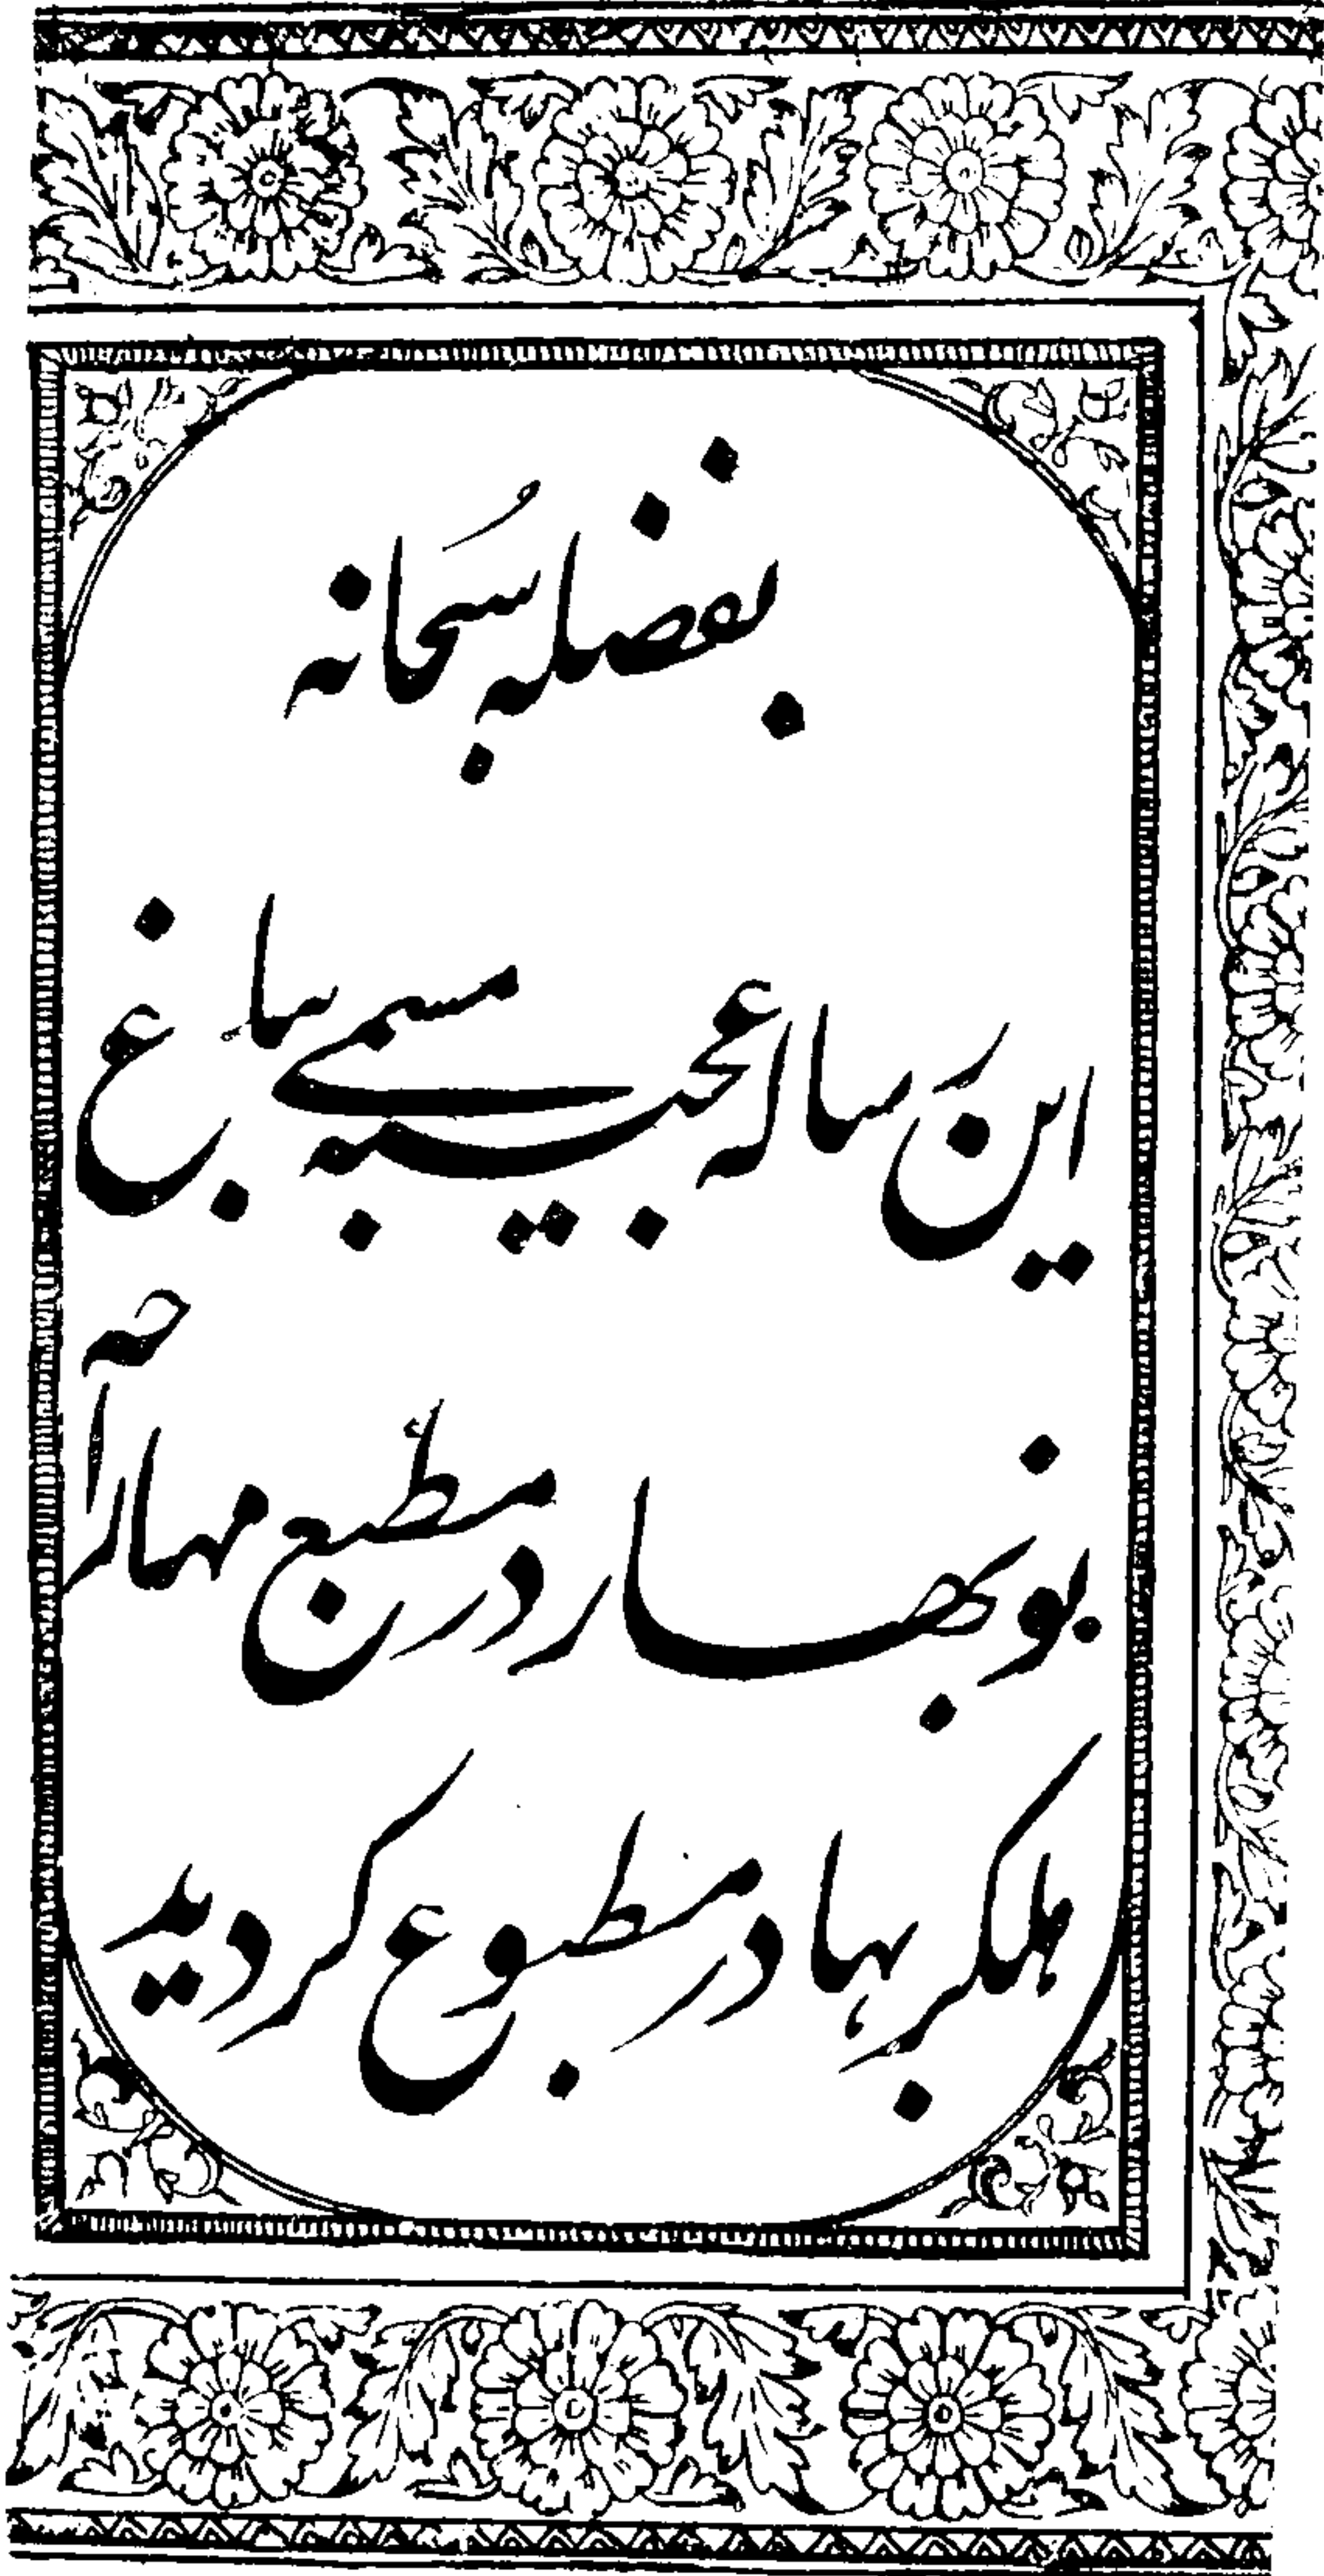 بفضلہ سُبحانہ
این رسالہ عجیبہ مسمے بباغ
نوبھار در مطبع مہاراجہ
ہلکر بہادر مطبوع کردید